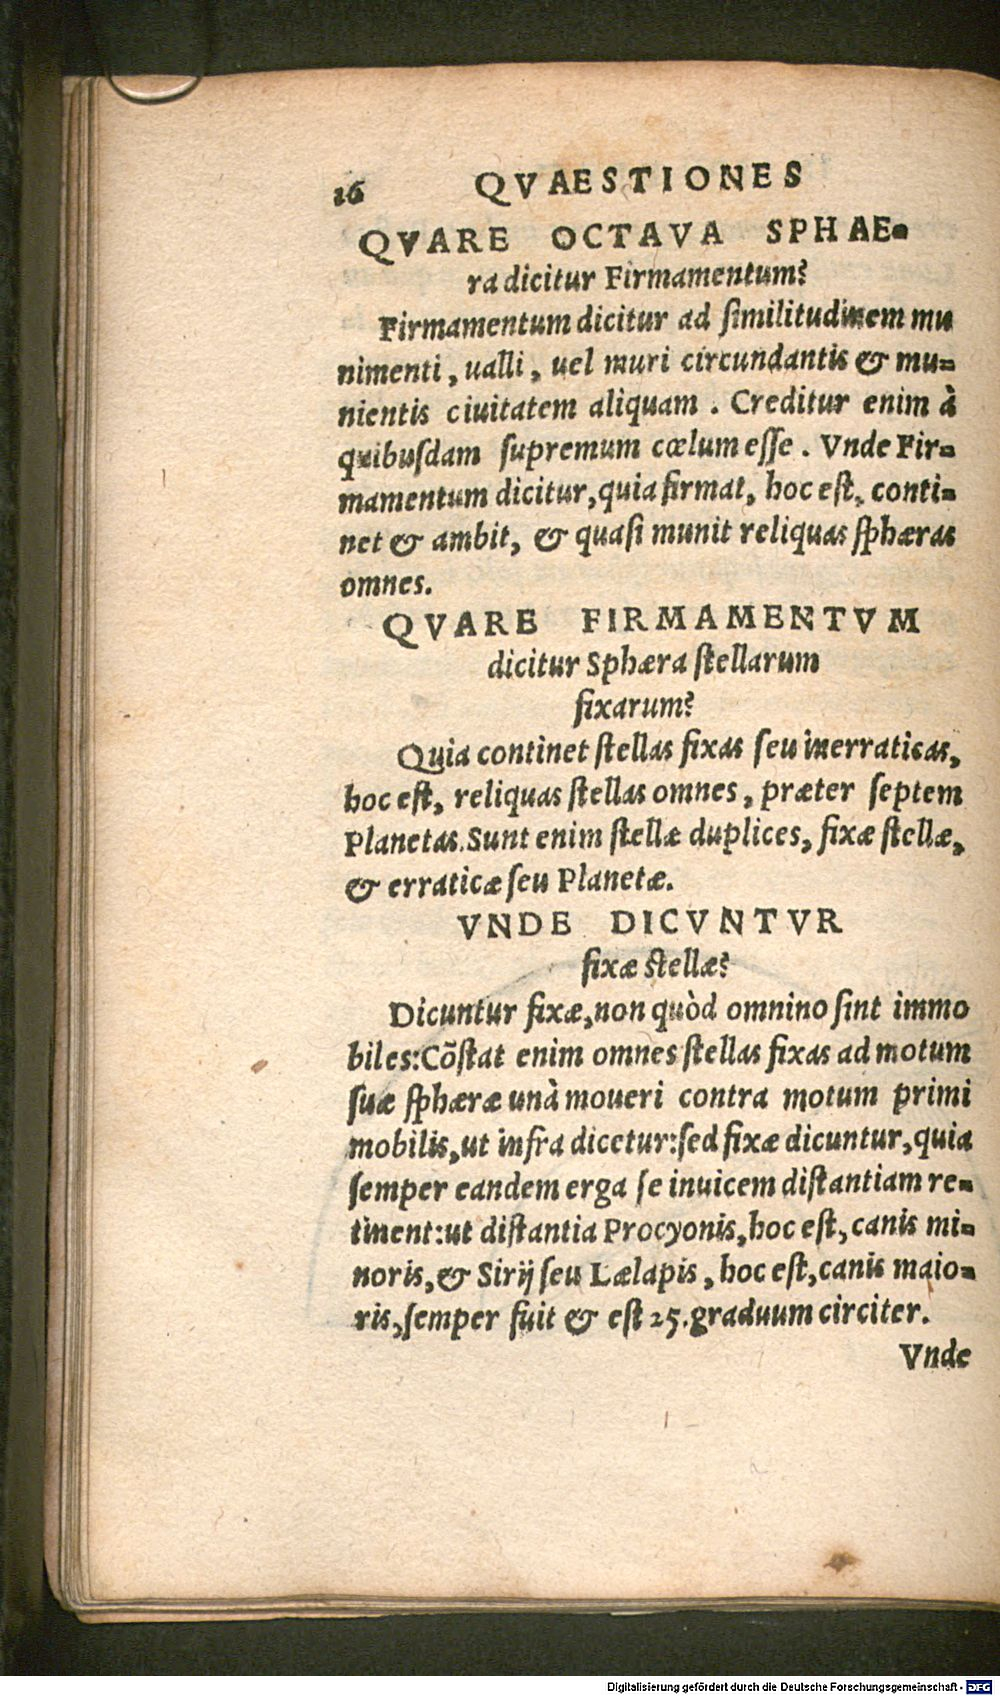 16 QVAESTIONES
QVARE OCTAVA SPHAE-
ra dicitur Firmamentum?
Firmamentum dicitur ad ſimilitudinem mu
nimenti, ualli, uel muri circundantis & mu-
nientis ciuitatem aliquam. Creditur enim à
quibuſdam ſupremum cœlum eſſe. Vnde Fir-
mamentum dicitur, quia firmat, hoc eſt, conti-
net & ambit, & quaſi munit reliquas ſphæras
omnes.
QVARE FIRMAMENTVM
dicitur Sphæra ſtellarum
fixarum?
Quia continet ſtellas fixas ſeu inerraticas,
hoc eſt, reliquas ſtellas omnes, præter ſeptem
Planetas. Sunt enim ſtellæ duplices, fixæ ſtellæ,
& erraticæ ſeu Planetæ.
VNDE DICVNTVR
fixæ ſtellæ?
Dicuntur fixæ, non quòd omnino ſint immo
biles: Cõſtat enim omnes ſtellas fixas ad motum
ſuæ ſphæræ unà moueri contra motum primi
mobilis, ut infra dicetur: ſed fixæ dicuntur, quia
ſemper eandem erga ſe inuicem diſtantiam re-
tinent: ut diſtantia Procyonis, hoc eſt, canis mi-
noris, & Sirij ſeu Lælapis, hoc eſt, canis maio-
ris, ſemper fuit & eſt 25. graduum circiter.
Vnde
Digitalisierung gefördert durch die Deutsche Forschungsgemeinschaft - DFG